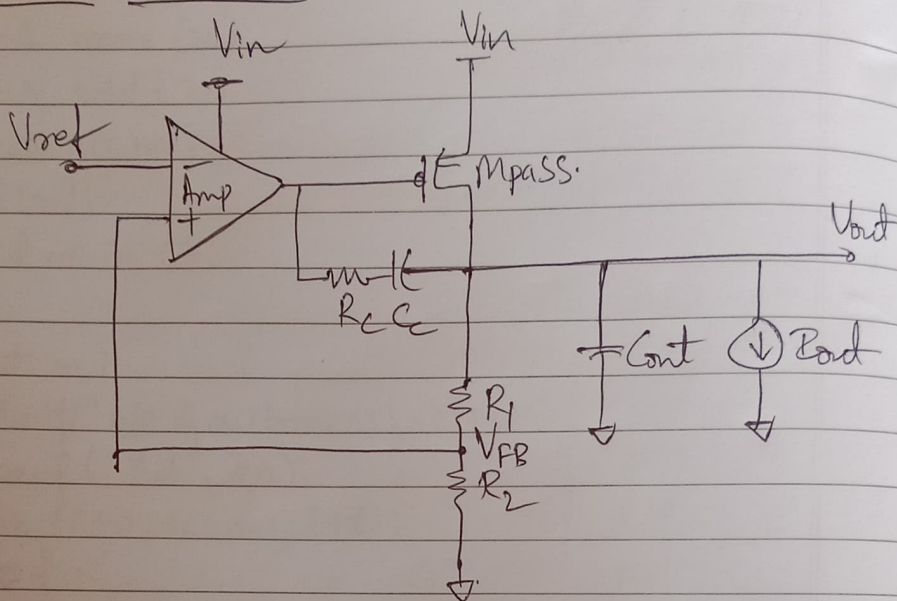 Vin
Vin
Vref
-
Amp
+
Mpass.
Vout
Rc Cc
Cout
R1
VFB
R2